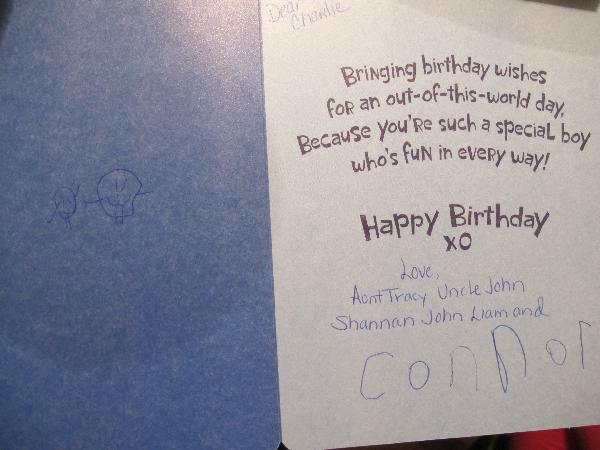 Dear
Charlie
Bringing birthday wishes
for an out-of-this-world day,
Because you're such a special boy
who's fun in every way!
Happy Birthday
xo
Love,
Aont Tracy Uncle John
Shannan John Liam and
Connor